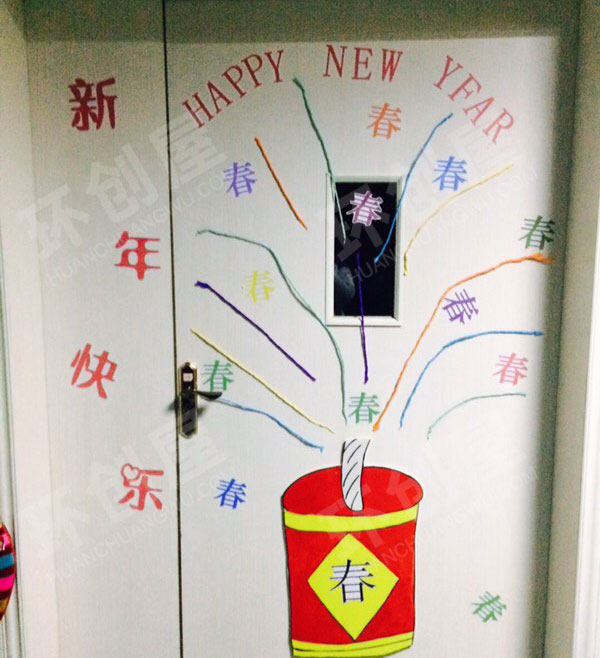 HAPPY NEW YFAR
新年快乐
春
春
春
春
春
春
春
春
春
春
春
春
春
环创屋
HUANCHUANGWU.COM
环创屋
HUANCHUANGWU.COM
环创屋
HUANCHUANGWU.COM
环创屋
HUANCHUANGWU.COM